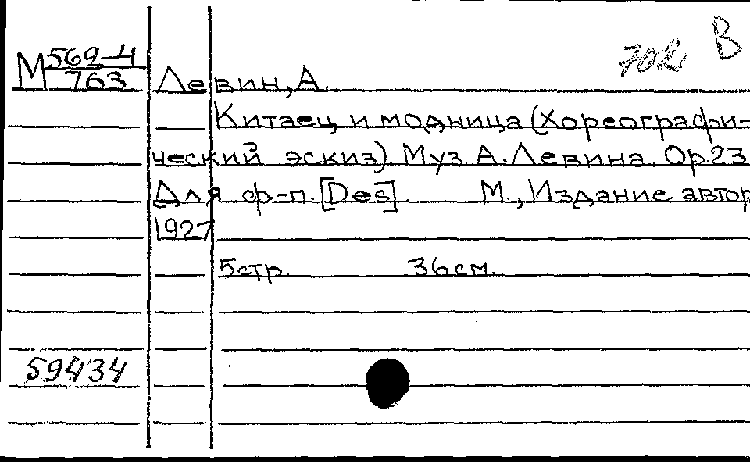 В
М 562-4/763 Левин, А.
Китаец и модница (Хореографи-
ческий эскиз). Муз А. Левина. Ор. 23
Для ф-п. [Des]. М., Издание автор
1927
5 стр. 36 см.
59434